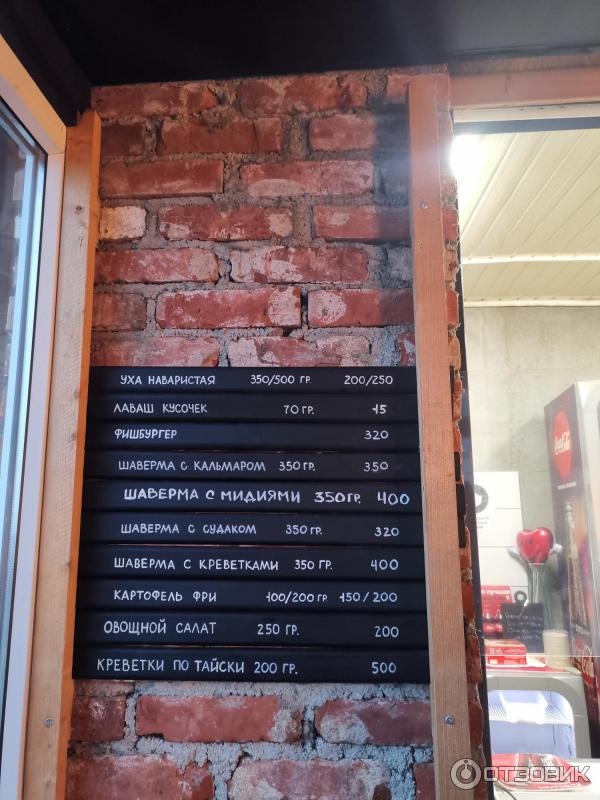 УХА НАВАРИСТАЯ 350/500 ГР. 200/250
ЛАВАШ КУСОЧЕК 70 ГР. 15
ФИШБУРГЕР 320
ШАВЕРМА С КАЛЬМАРОМ 350 ГР. 350
ШАВЕРМА С МИДИЯМИ 350 ГР. 400
ШАВЕРМА С СУДАКОМ 350 ГР. 320
ШАВЕРМА С КРЕВЕТКАМИ 350 ГР. 400
КАРТОФЕЛЬ ФРИ 100/200 ГР 150/200
ОВОЩНОЙ САЛАТ 250 ГР. 200
КРЕВЕТКИ ПО ТАЙСКИ 200 ГР. 500
Coca-Cola
TESS
ОТЗОВИК